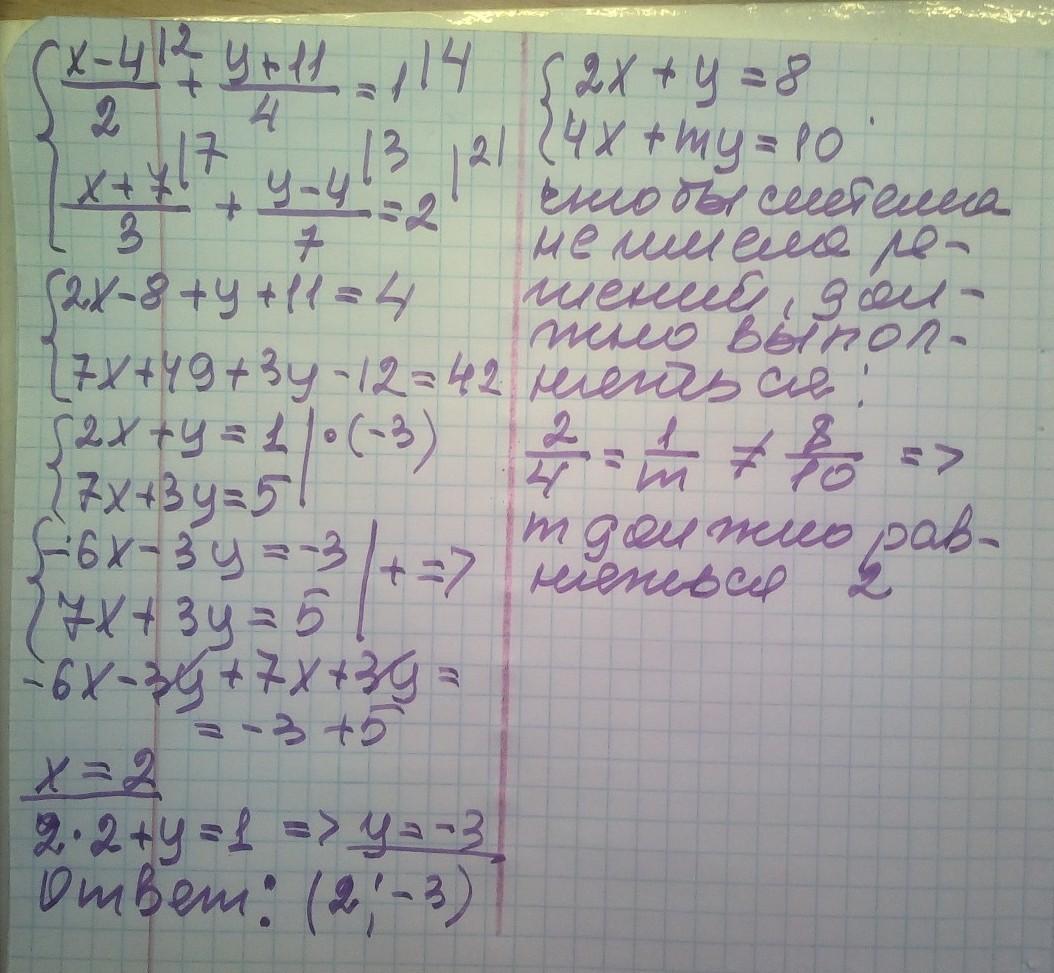 x-4|2/2 + y+11/4 = 1|4
x+7|7/3 + y-4|3/7 = 2|21
2x-8+y+11=4
7x+49+3y-12=42
2x+y=1|·(-3)
7x+3y=5
-6x-3y=-3|+=>
7x+3y=5
-6x-3y+7x+3y=
=-3+5
x=2
2·2+y=1 => y=-3
Ответ: (2;-3)
2x+y=8
4x+my=10
чтобы система
не имела ре-
шений, дол-
жно выпол-
няться:
2/4 = 1/m ≠ 8/10 =>
m должно рав-
няться 2